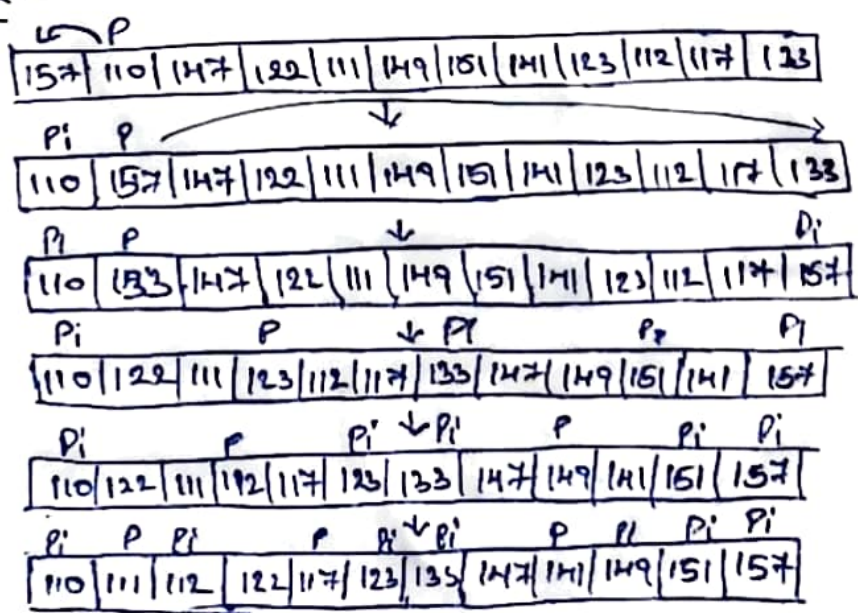 P
157 110 147 122 111 149 151 141 123 112 117 133
Pi P
110 157 147 122 111 149 151 141 123 112 117 133
Pi P Pi
110 133 147 122 111 149 151 141 123 112 117 157
Pi P Pi Pi
110 122 111 123 112 117 133 147 149 151 141 157
Pi P Pi Pi P Pi Pi
110 122 111 112 117 123 133 147 149 141 151 157
Pi P Pi P Pi Pi P Pi Pi Pi
110 111 112 122 117 123 133 147 141 149 151 157